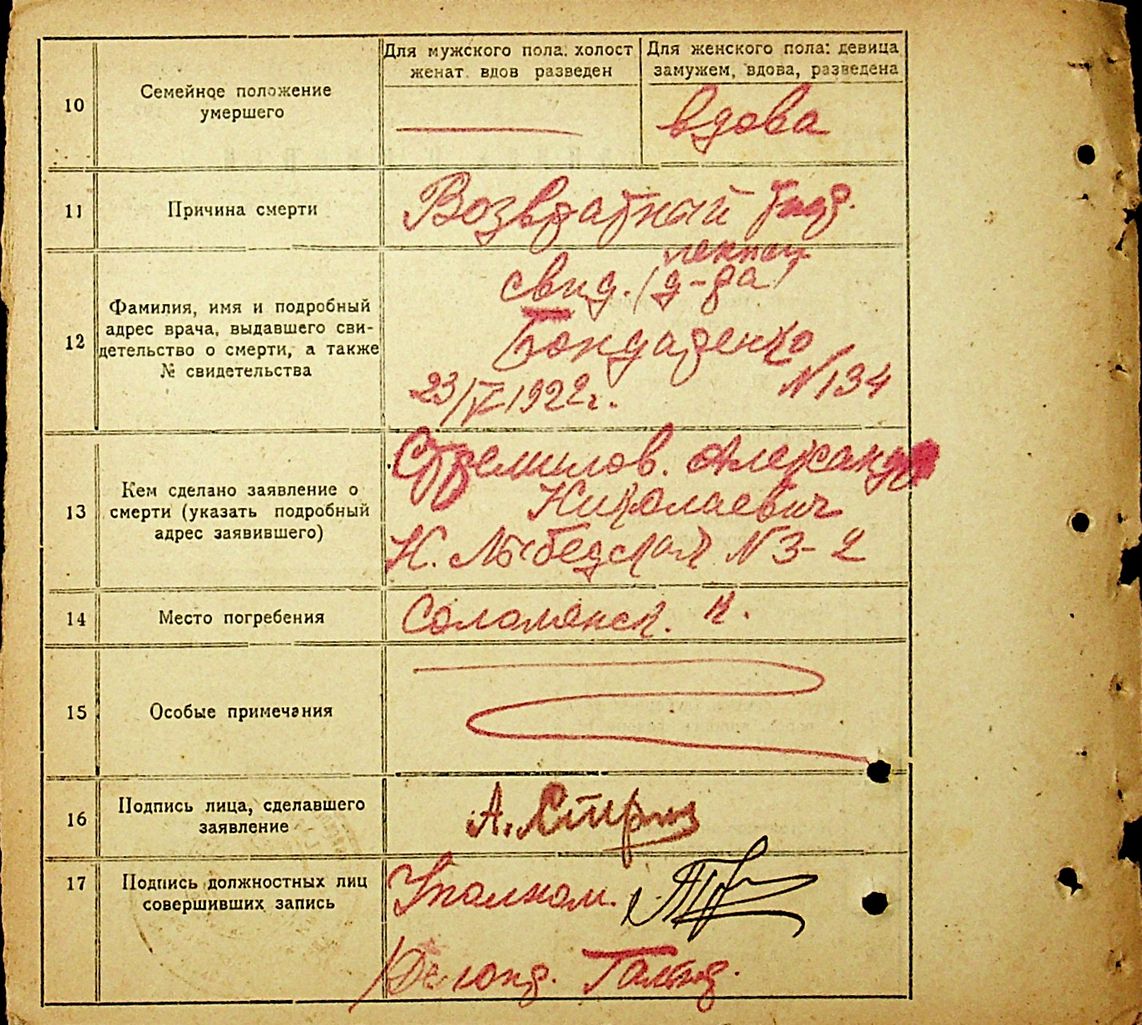 10
Семейное положение
умершего
Для мужского пола: холост
женат вдов разведен
Для женского пола: девица
замужем, вдова, разведена
вдова
11
Причина смерти
Возвратный тиф.
12
Фамилия, имя и подробный
адрес врача, выдавшего сви-
детельство о смерти, а также
№ свидетельства
свид.
Бондаренко
23/IV 1922 г. N134
13
Кем сделано заявление о
смерти (указать подробный
адрес заявившего)
Стремилов. Александр
Николаевич
Н. Лыбедская N 3-2
14
Место погребения
Соломянск. к.
15
Особые примечания
16
Подпись лица, сделавшего
заявление
А.
17
Подпись должностных лиц
совершивших запись